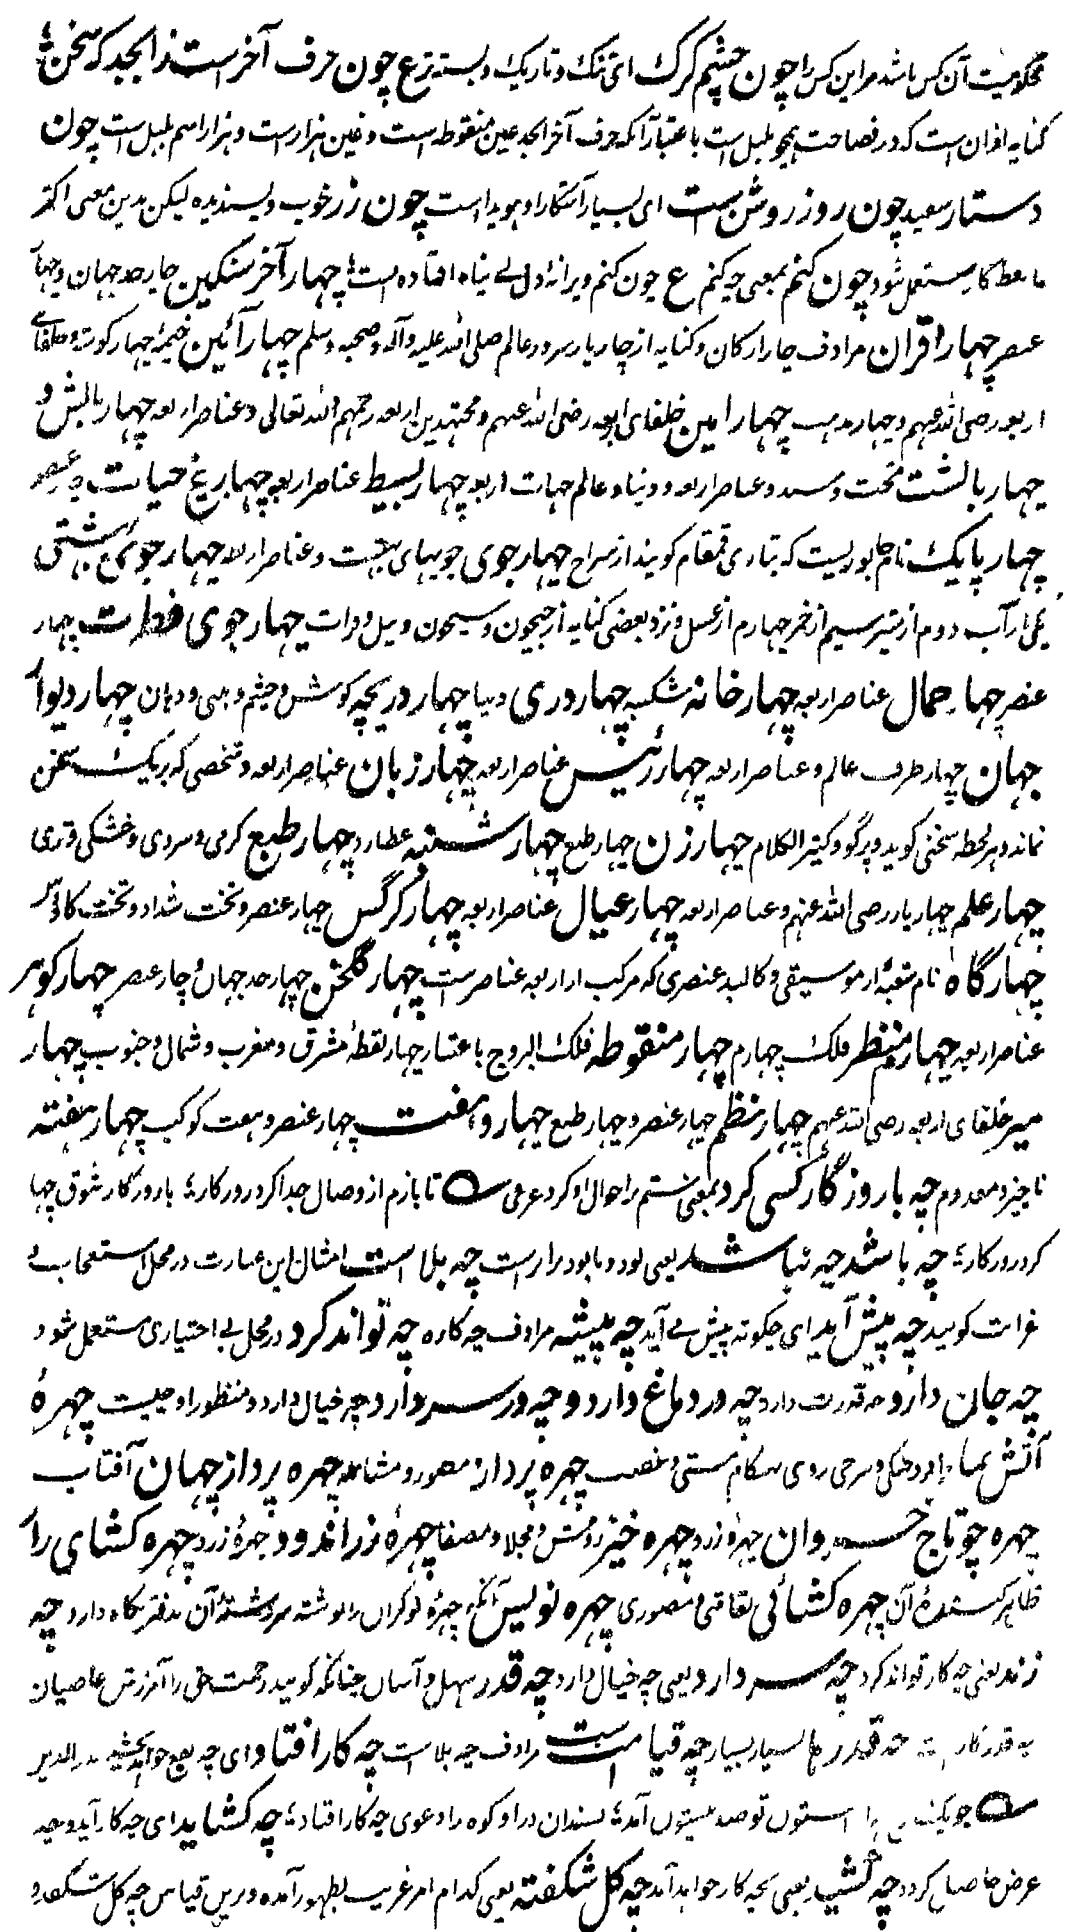 محکومیت آن کس باشد مر این کس را چون چشم کرک ای تنک و تاریک و بسته ترع چون حرف آخر است ز ابجد که سخن
کنایه ازان است که در فصاحت همچو بلبل است باعتبار آنکه حرف آخر ابجد عین منقوطه است و غین هزار است و هزار اسم بلبل است چون
دستار سعید چون روز روشن است ای بسیار آشکارا و هویدا است چون زر خوب و پسندیده لیکن بدین معنی اکثر
مستعمل شود چون کنم بمعنی چه کنم ع چون کنم ویرانهٔ دل بی پناه افتاده است چهار آخر سنکین چار حد جهان و چهار
عنصر چهار اقران مرادف چار ارکان و کنایه از چار یار سرور عالم صلی الله علیه وآله وصحبه وسلم چهار آئین خیمهٔ چهار کوشه و خلفای
اربعه رضی الله عنهم و چهار مذهب چهار امین خلفای اربعه رضی الله عنهم و مجتهدین اربعه رحمهم الله تعالی و عناصر اربعه چهار بالش و
چهار بالشت تخت و مسند و عناصر اربعه و دنیا و عالم جهات اربعه چهار بسیط عناصر اربعه چهار بیخ حیات چهار عنصر
چهار پایک نام جانوریست که بتازی قمقام کویند از سراج چهار جوی جویهای بهشت و عناصر اربعه چهار جوی بهشتی
یکی از آب دوم از شیر سیم از خمر چهارم از عسل و نزد بعضی کنایه از جیحون و سیحون و نیل و فرات چهار جوی فطرت چهار
عنصر چهار حمال عناصر اربعه چهار خانه شکنبه چهار دری دنیا چهار دریچه کوش و چشم و بینی و دهان چهار دیوار
جهان چهار طرف عالم و عناصر اربعه چهار رئیس عناصر اربعه چهار زبان عناصر اربعه و شخصی که بر یک سخن
نماند و هر لحظه سخنی کوید و پرگو و کثیر الکلام چهار زن چهار طبع چهار شنبه عطارد چهار طبع کرمی و سردی و خشکی و تری
چهار علم چهار یار رضی الله عنهم و عناصر اربعه چهار عیال عناصر اربعه چهار کرگس چهار عنصر و تخت شداد و تخت کاؤس
چهار گاه نام شعبهٔ از موسیقی و کالبد عنصری که مرکب از اربعه عناصر است چهار گلخن چهار حد جهان و چار عنصر چهار کوهر
عناصر اربعه چهار منظر فلک چهارم چهار منقوطه فلک البروج باعتبار چهار نقطهٔ مشرق و مغرب و شمال و جنوب چهار
میر خلفای اربعه رضی الله عنهم چهار نظم چهار عنصر و چهار طبع چهار و هفت چهار عنصر و هفت کوکب چهار هفته
ناچیز و معدوم چه با روزگار کسی کرد بمعنی ستم را حوال او کرد عرفی تا بازم از وصال جدا کرد روزکار با روزکار شوق چها
کرد روزکار چه باشد چه نباشد یعنی بود و نابود برابر است چه بلا است امثال این عبارت در محل استعجاب بی
غرابت کویند چه پیش آید ای چکونه پیش می آید چه پیشه مرادف چه کاره چه تواند کرد در محل بی اختیاری مستعمل شود
چه جان دارد چه قدرت دارد چه در دماغ دارد و چه در سر دارد چه خیال دارد و منظور او چیست چهرهٔ
آتش نما برافروختگی و سرخی روی هنکام مستی و غضب چهره پرداز مصور و مشاطه چهره پرداز جهان آفتاب
چهره چو تاج خسروان چهرهٔ زرد چهره خیز روشن و مجلا و مصفا چهرهٔ زر اندود چهرهٔ زرد چهره کشای راز
ظاهر کنندهٔ آن چهره کشائی نقاشی و مصوری چهره نویس آنکه چهرهٔ نوکران را نوشته سررشتهٔ آن بدفتر نکاه دارد چه
زند یعنی چه کار تواند کرد چه سر دارد یعنی چه خیال دارد چه قدر سهل و آسان چنانکه کویند رحمت حق را آمرزش عاصیان
چه قدر کار است چه قدرها بسیار بسیار چه قیامت است مرادف چه بلا است چه کار افتاد ای چه نفع خواهد بخشید بدر الدین
بیستون تو صد بیستون آمد بسندان در او کوه را دعوی چه کار افتاد چه کشاید ای چه کار آید و چه
عرض حاصل کردد چه نشیند یعنی بچه کار خواهد آمد چه کل شکفته یعنی کدام امر غریب بظهور آمده و برین قیاس چه کل شکفد و